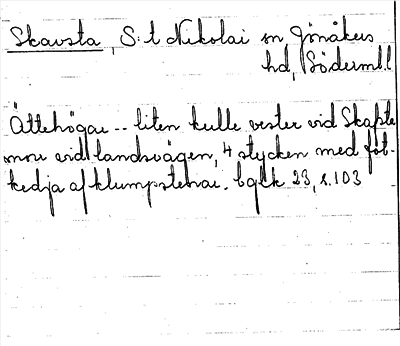 Skavsta, S:t Nikolai sn Jönåkers
hd, Söderml.
Ättehögar -- liten kulle vester vid Skapte
mon vid landsvägen, 4 stycken med fot-
kedja af klumpstenar. bglk 23, s. 103